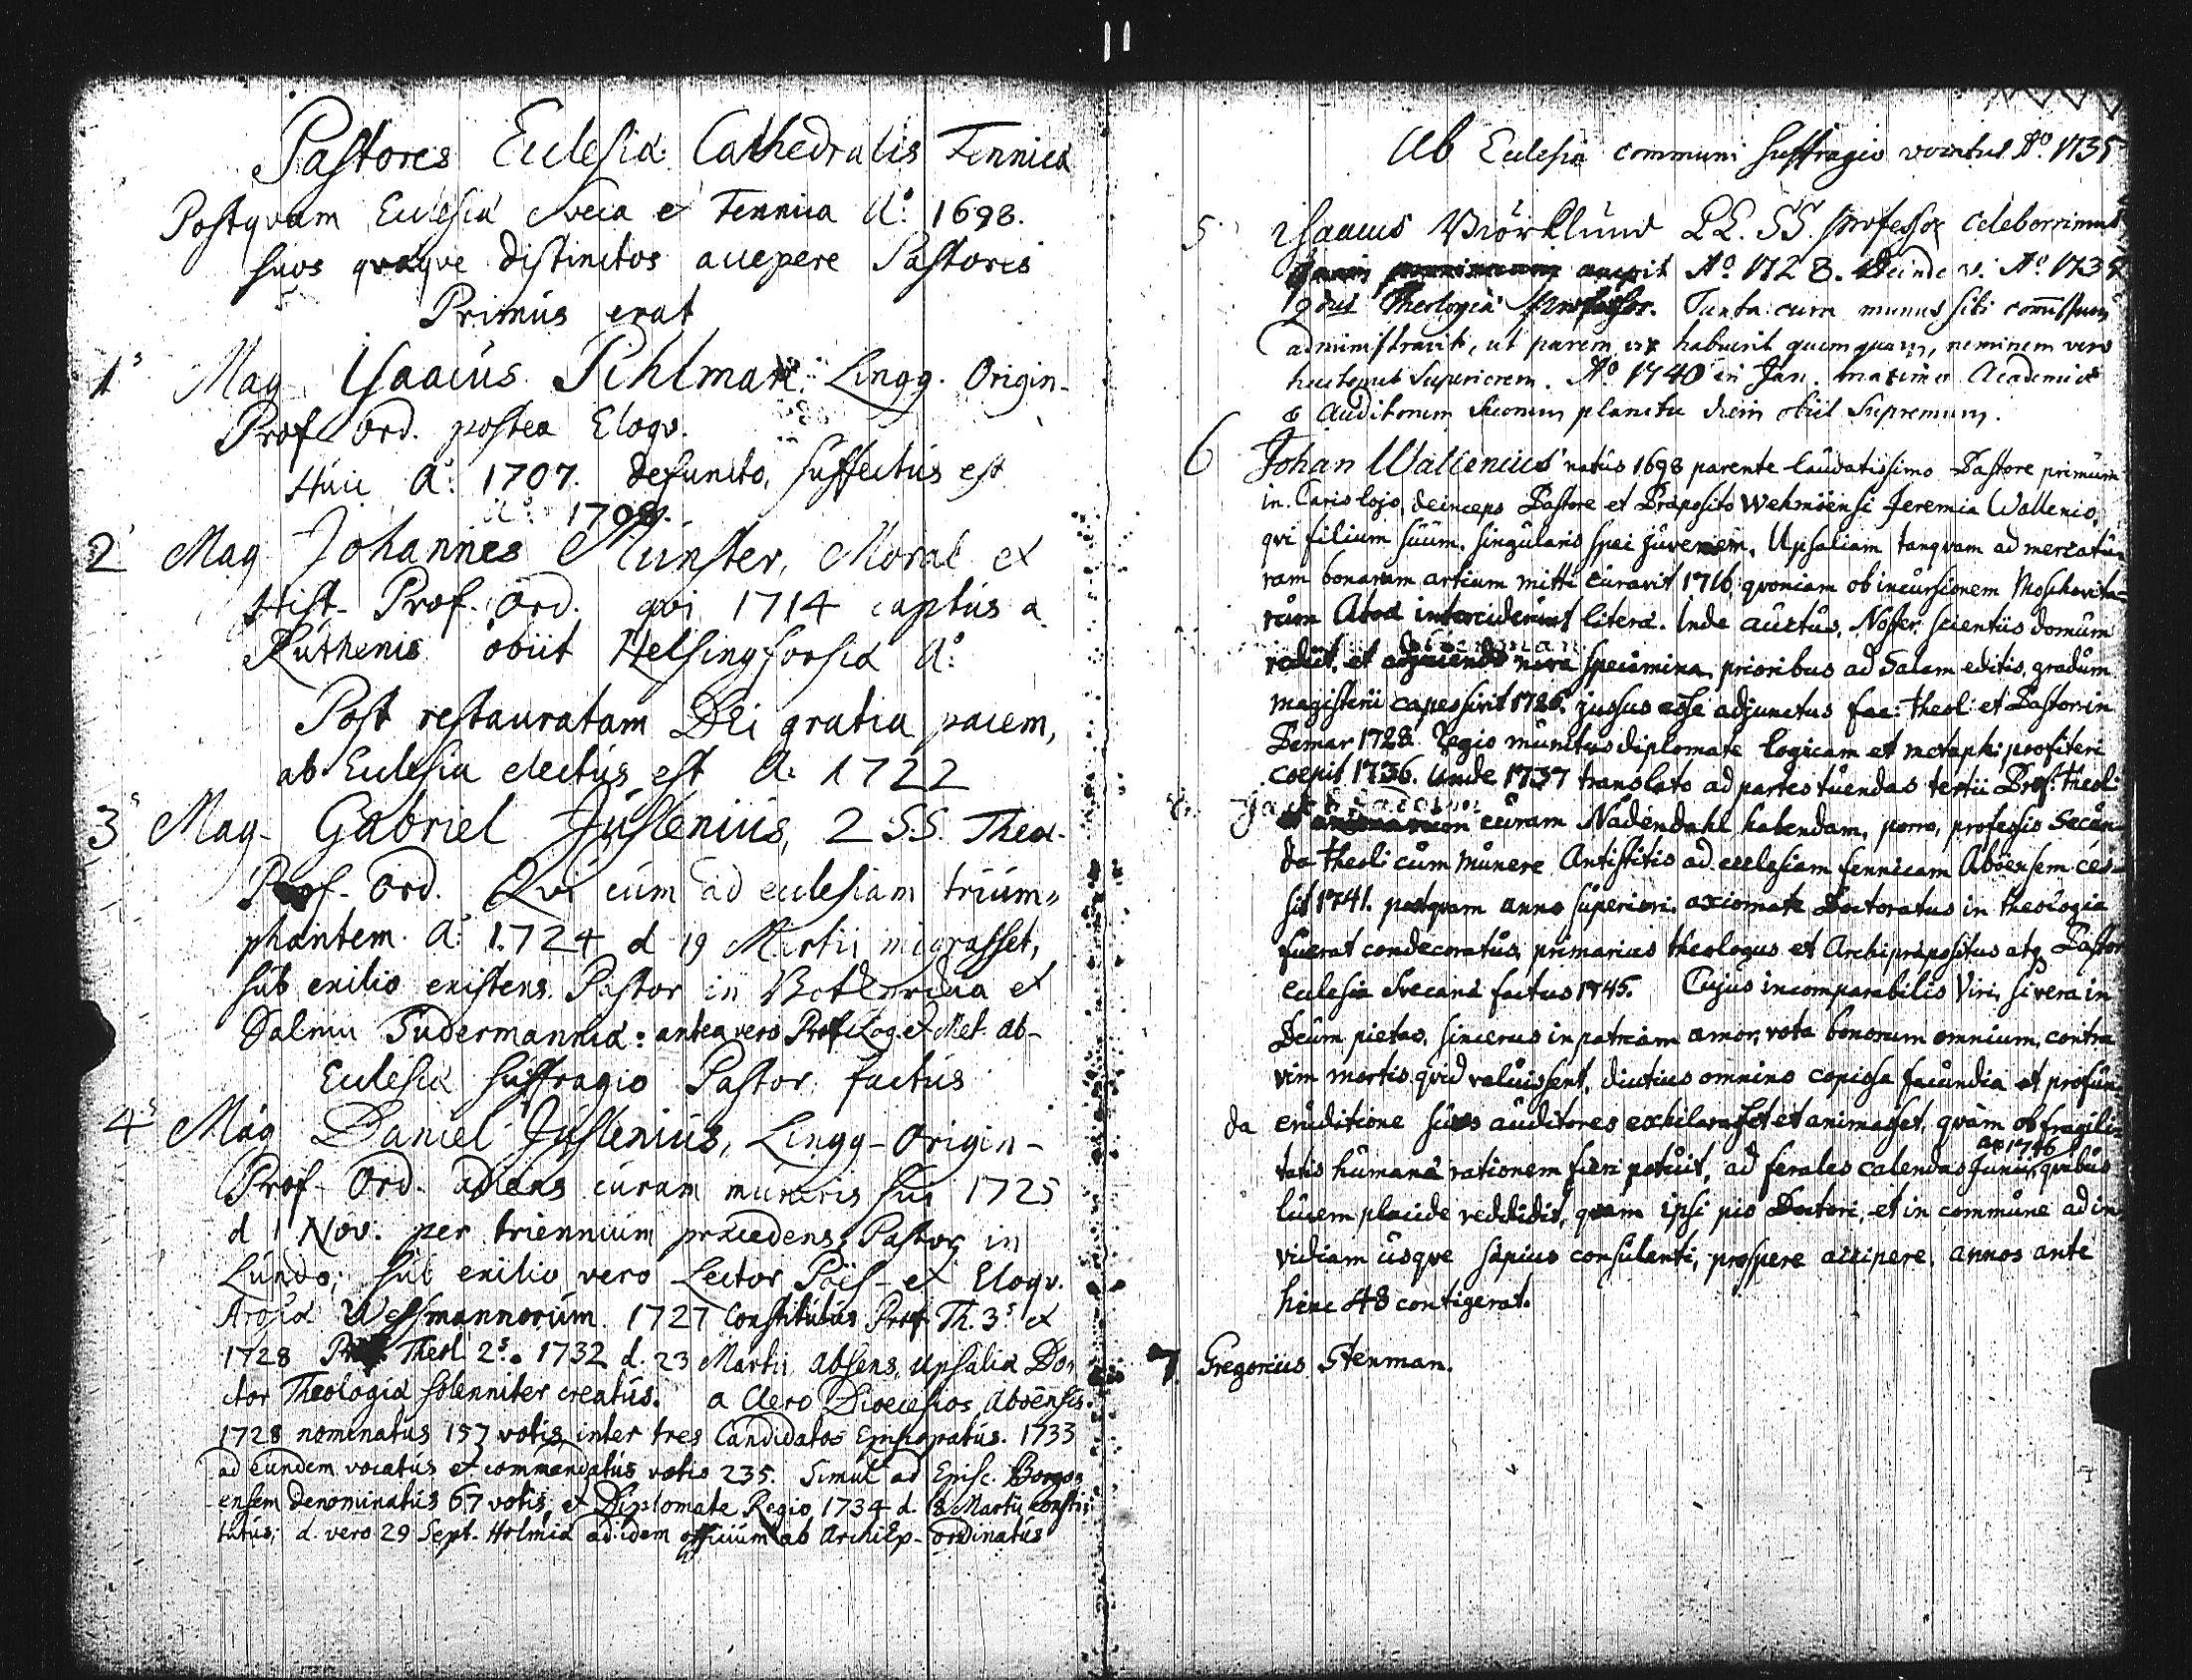 Pastores Ecclesiæ Cathedralis Fennicæ
Postqvam Ecclesiæ Svecia et Fennica A:o 1698.
suos qvæqve distinctos accepere Pastores
Primus erat
1s Mag Isaacus Pihlman. Lingg. Origin-
Prof ord. postea Eloqv.
Huic A:o 1707. defuncto, suffectus est
A:o 1708.
2 Mag Johannes Munster, Moral et
Hist- Prof. ord. qvi 1714 captus a
Ruthenis obiit Helsingforsiæ A:o
Post restauratam Dei gratia pacem,
ab Ecclesia electus est A: 1722
3s Mag- Gabriel Juslenius, 2 S.S. Theol-
Prof- ord. Qvi cum ad ecclesiam trium-
phantem A:o 1724 d 19 Martii migrasset,
sub exilio existens Pastor in Botkyrckia et
Salmu Sudermanniæ: antea vero Prof Log. et Met. ab-
Ecclesiæ suffragio Pastor factus
4s Mag Daniel Juslenius, Lingg- Origin-
Prof- Ord. adiens curam muneris sui 1725
d 1 Nov: per triennium præcedens Pastor in
Lundo, sub exilio vero Lector Poës- et Eloqv.
Arosiæ Wessmannorum. 1727 Constitutus Prof Th. 3s et
1728 Theol 2s. 1732 d. 23 Martii absens, Upsaliæ Do-
ctor Theologiæ solenniter creatus. a Clero Dioecesios Aboënsis
1728 nominatus 157 votis inter tres Candidatos Episcopatus. 1733
ad eundem vocatus et commendatus votis 235. Simul ad Episc. Borgo-
ensem denominatus 67 votis, et Diplomate Regio 1734 d. 8 Martii consti-
tutus; d. vero 29 Sept. Holmiæ ad idem officium ab ArchiEp- ordinatus
Ab Ecclesia communi suffragio vocatus A:o 1735
5 Isaacus Biörklund LL. SS. professor celeberrimus
accepit A:o 1728. Deinde v. A:o 1735
Theologiæ professor. Tanta cura munus sibi com̄issum
administravit, ut parem vix habuerit quemquam, neminem vero
hactenus Superiorem. A:o 1740 in Jan. maximo Academiæ
& Auditorum suorum planctu diem obiit Supremum.
6 Johan Wallenius natus 1698 parente laudatissimo Pastore primum
in Carislojo, deinceps Pastore et Præposito Wehmöensi Jeremia Wallenio,
qvi filium suum, singularis spei juvenem, Upsaliam tanqvam ad mercatu-
ram bonarum artium mitti curavit 1716, qvoniam ob incursionem Moschovita-
rum Aboa interciderunt literæ. Inde auctus, Noster scientiis domum
rediit, et nova speciimina prioribus ad Salam editis, gradum
magisterii capessivit 1726. jussus esse adjunctus fac: theol: et Pastor in
Pemar 1728. Regio munitus diplomate logicam et metaph: profiteri
coepit 1736. Unde 1737 translato ad partes tuendas tertii Prof: theol:
curam Nådendahl habendam, porro, professio Secun-
da theoli cum munere Antistitis ad ecclesiam fennicam Aboënsem ces-
sit 1741. postqvam anno superiori, axiomate Doctoratus in theologia
fuerat condecoratus, primarius theologus et Archipræpositus atq Pastor
ecclesiæ Svecanæ factus 1745. Cujus incomparabilis Viri, si vera in
Deum pietas, sincerus in patriam amor, vota bonorum omnium, contra
vim mortis qvid valuissent, diutius omnino copiosa facundia et profun-
da eruditione suos auditores exhilarasset et animasset, qvam ob fragili-
tatis humanæ rationem fieri potuit, ad ferales calendas Junii, ao 1746 qvibus
lucem placide reddidit, qvam ipsi pio Doctori, et in commune ad in
vidiam usqve sæpius consulenti, prospere accipere, annos ante
hinc 48 contigerat.
7 Gregorius Stenman.